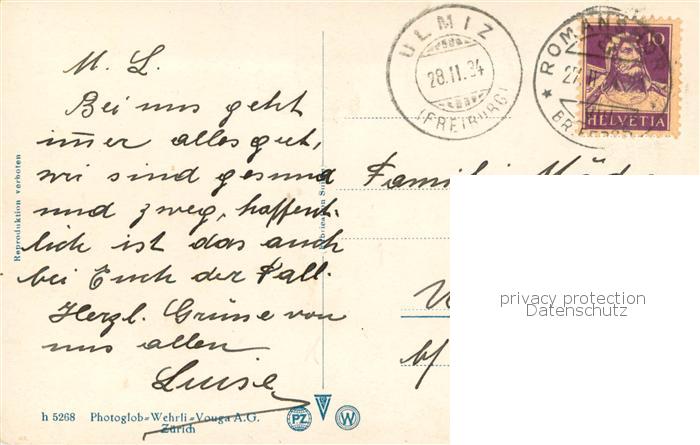 M. L.
Bei uns geht
immer alles gut,
wir sind gesund
und zweg, hoffent-
lich ist das auch
bei Euch der Fall.
Herzl. Grüsse von
uns allen
Luise
Reproduktion verboten
h 5268 Photoglob-Wehrli-Vouga A.G.
Zürich
PZ
W
ULMIZ
28.II.34
(FREIBURG)
ROMANS
10
HELVETIA
Familie
privacy protection
Datenschutz